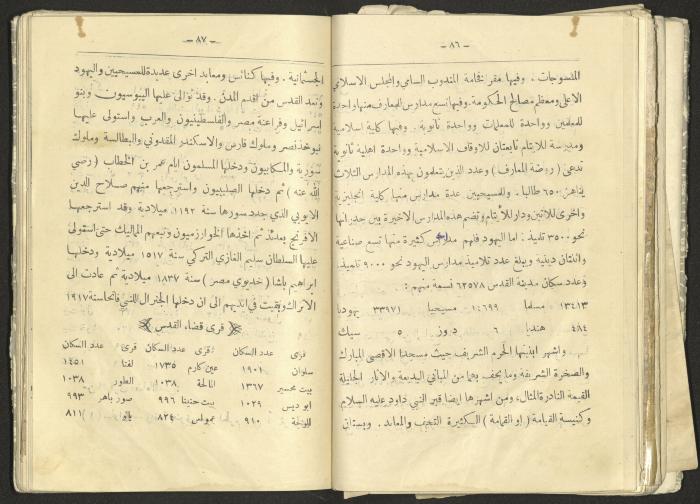 — ٨٦ —
المنسوجات . وفيها مقر فخامة المندوب السامي والمجلس الاسلامي
الاعلى ومعظم مصالح الحكومة وفيها تسع مدارس للمعارف منها واحدة
للمعلمين وواحدة للمعلمات وواحدة ثانوية . وفيها كلية اسلامية
ومدرسة للايتام تابعتان للاوقاف الاسلامية وواحدة اهلية ثانوية
تدعى ( روضة المعارف ) وعدد الذين يتعلمون بهذه المدارس الثلاث
يناهز ٦٥٠ طالبا . وللمسيحيين عدة مدارس منها كلية انجليزية
واخرى للاتين ودار للأيتام وتضم هذه المدارس الاخيرة بين جدرانها
نحو ٣٥٠٠ تلميذ : اما اليهود فلهم مدارس كثيرة منها تسع صناعية
واثنتان دينية ويبلغ عدد تلاميذ مدارس اليهود نحو ٩٠٠٠ تلميذ .
وعدد سكان مدينة القدس ٦٢٥٧٨ نسمة منهم :
١٣٤١٣ مسلما ١٤٦٩٩ مسيحيا ٣٣٩٧١ يهوديا
٤٨٤ هنديا ٦ دروز ٥ سيك
واشهر ابنيتها الحرم الشريف حيث مسجدنا الاقصى المبارك
والصخرة الشريفة وما يحف بهما من المباني البديعة والآثار الجليلة
القيمة النادرة المثال ، ومن اشهرها ايضا قبر النبي داود عليه السلام
وكنيسة القيامة ( او القمامة ) الكثيرة التحف والمعابد . وبستان
— ٨٧ —
الجسمانية . وفيها كنائس ومعابد اخرى عديدة للمسيحيين واليهود
وتعد القدس من اقدم المدن . وقد توالى عليها اليبوسيون وبنو
اسرائيل وفراعنة مصر والفلسطينيون والعرب واستولى عليها
نبوخذنصر وملوك فارس والاسكندر المقدوني والبطالسة وملوك
سورية والمكابيون ودخلها المسلمون ايام عمر بن الخطاب ( رضي
الله عنه ) ثم دخلها الصليبيون واسترجعها منهم صلاح الدين
الايوبي الذي جدد سورها سنة ١١٩٢ ميلادية وقد استرجعها
الافرنج بعدئذ ثم اخذها الخوارزميون وتبعهم المماليك حتى استولى
عليها السلطان سليم الغازي التركي سنة ١٥١٧ ميلادية ودخلها
ابراهيم باشا ( خديوي مصر ) سنة ١٨٣٧ ميلادية ثم عادت الى
الاتراك وبقيت في ايديهم الى ان دخلها الجنرال اللنبي فاتحا سنة ١٩١٧
قرى قضاء القدس
قرى عدد السكان قرى عدد السكان قرى عدد السكان
سلوان ١٩٠١ عين كارم ١٧٣٥ لفتا ١٤٥١
بيت محسير ١٣٦٧ المالحة ١٠٣٨ الطور ١٠٣٨
ابو ديس ١٠٢٩ بيت حنينا ٩٩٦ صور باهر ٩٩٣
الولجة ٩١٠ عمواس ٨٢٤ يالو ٨١١